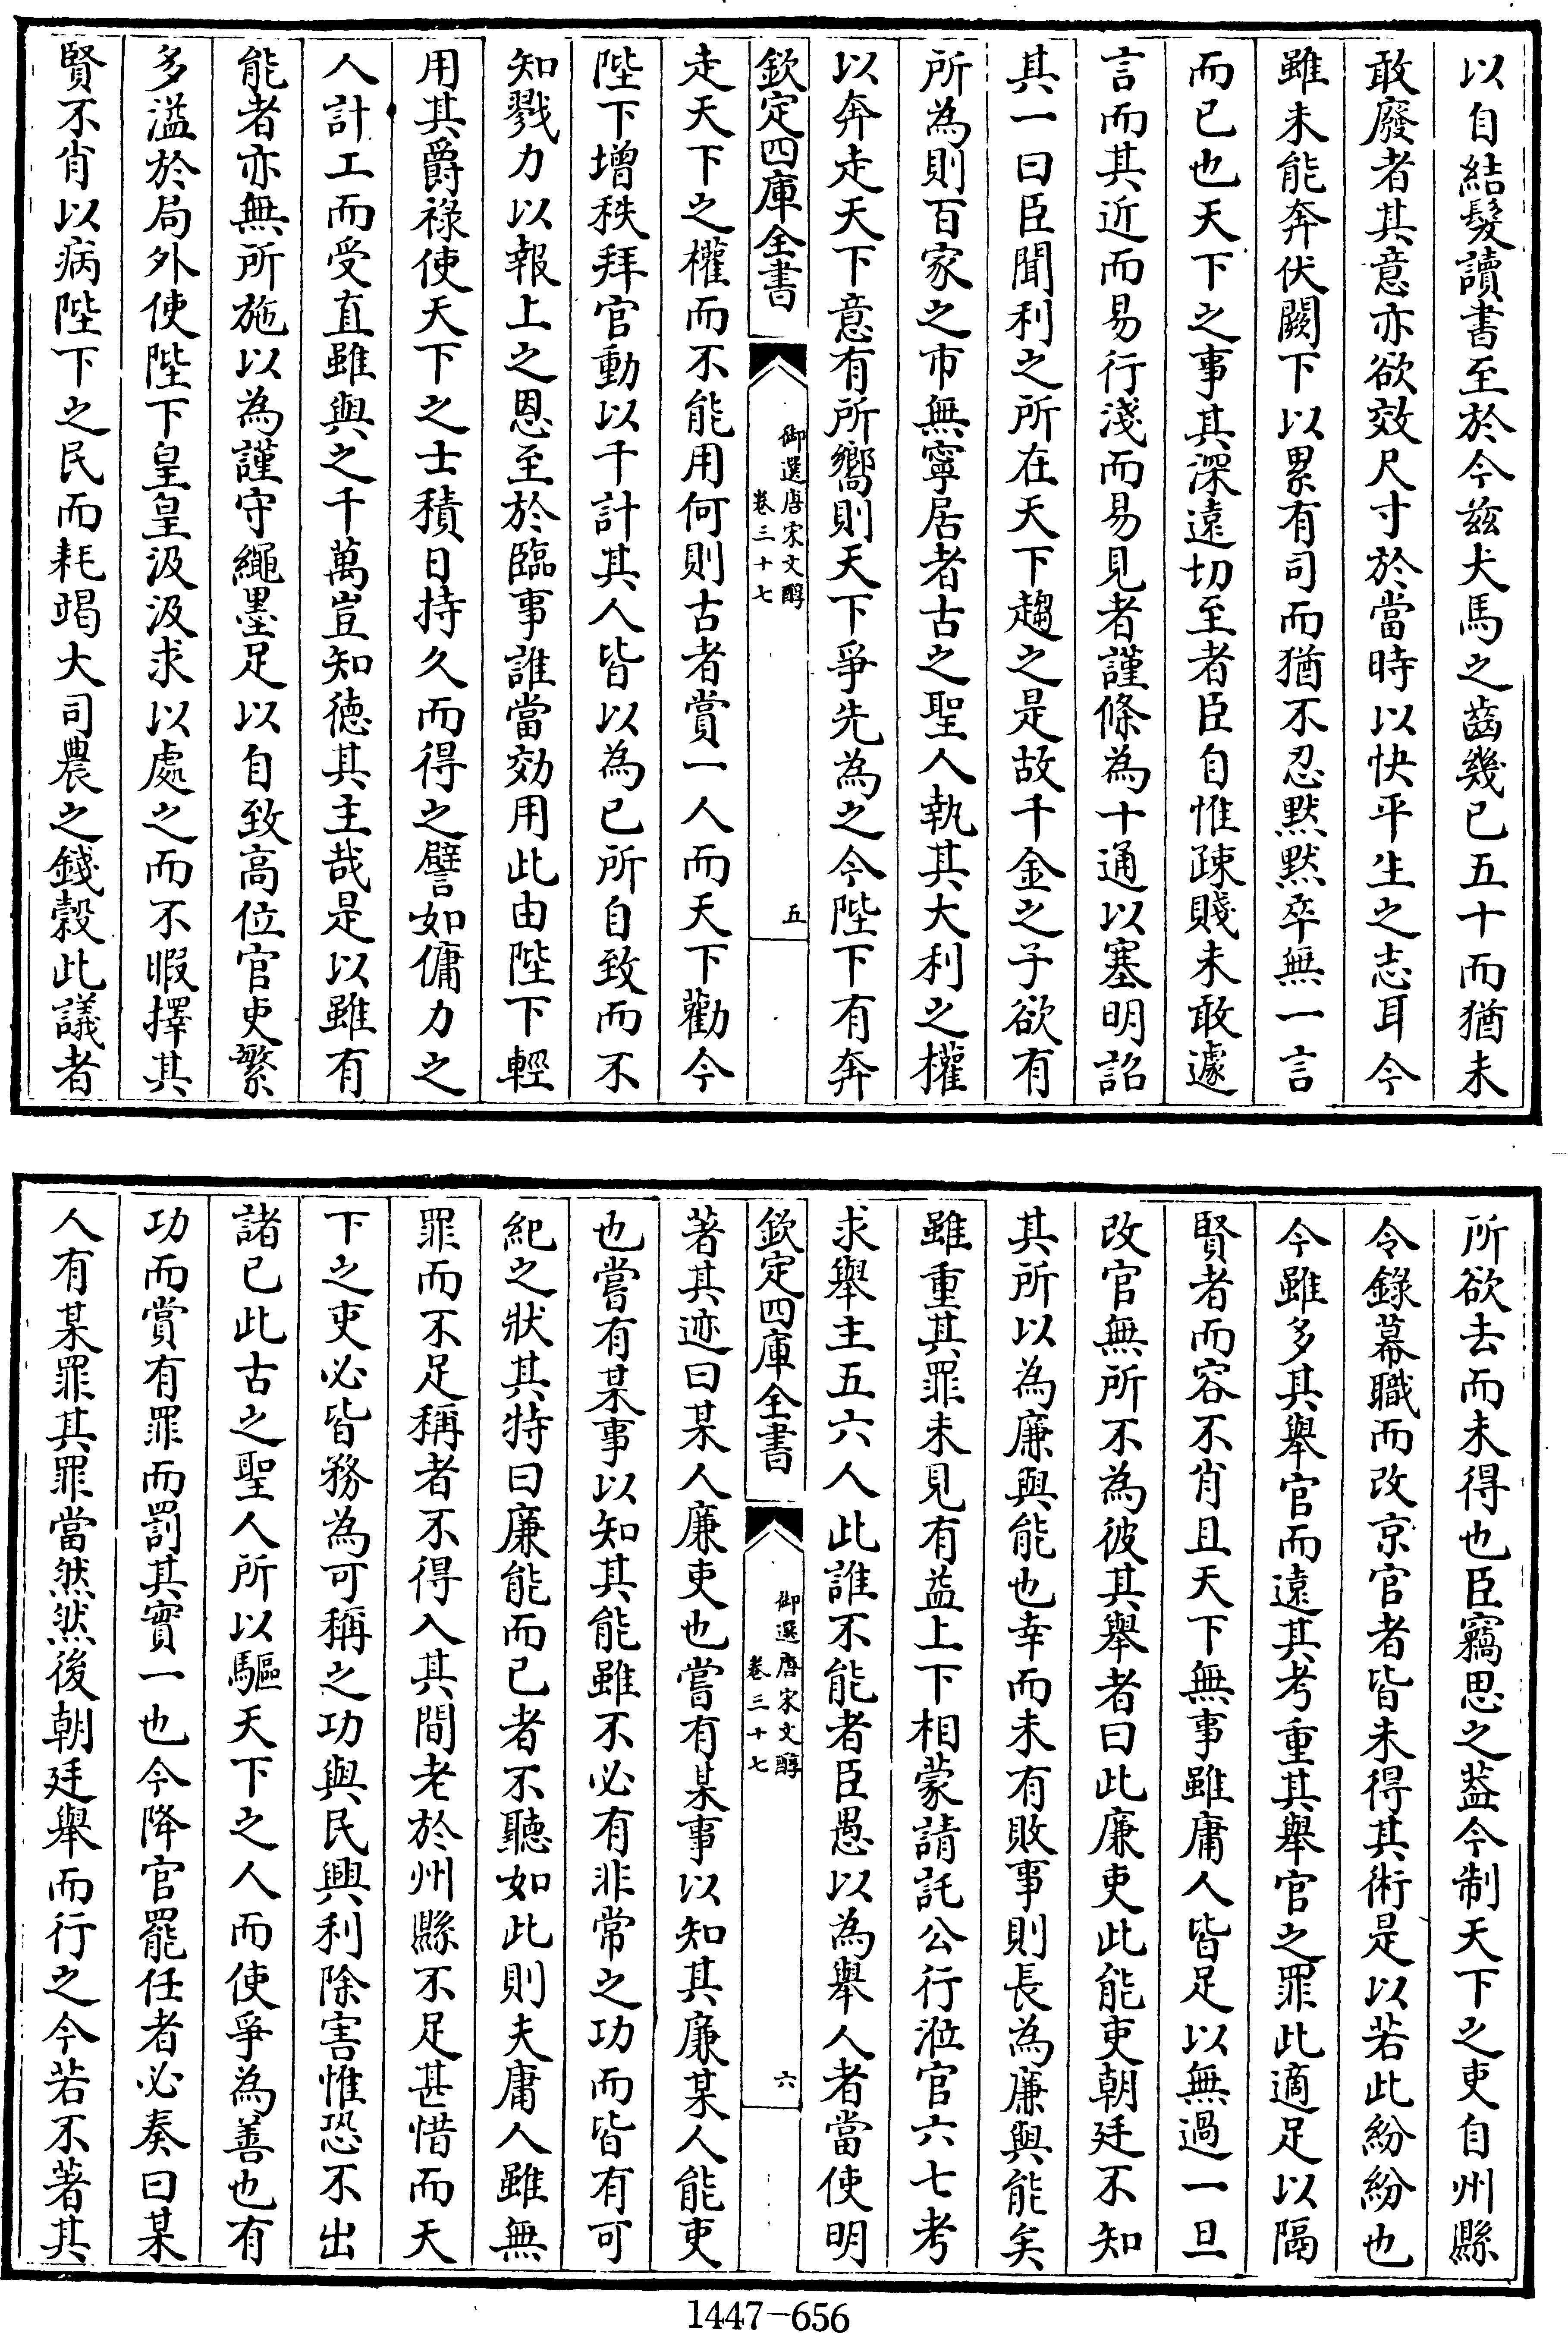 以自結髮讀書至於今兹犬馬之齒幾已五十而猶未
敢廢者其意亦欲效尺寸於當時以快平生之志耳今
雖未能奔伏闕下以累有司而猶不忍黙黙卒無一言
而已也天下之事其深遠切至者臣自惟疎賤未敢遽
言而其近而易行淺而易見者謹條為十通以塞明詔
其一曰臣聞利之所在天下趨之是故千金之子欲有
所為則百家之市無寧居者古之聖人執其大利之權
以奔走天下意有所嚮則天下爭先為之今陛下有奔
欽定四庫全書
御選唐宋文醇
卷三十七
五
走天下之權而不能用何則古者賞一人而天下勸今
陛下增秩拜官動以千計其人皆以為已所自致而不
知戮力以報上之恩至於臨事誰當効用此由陛下輕
用其爵祿使天下之士積日持久而得之譬如傭力之
人計工而受直雖與之千萬豈知德其主哉是以雖有
能者亦無所施以為謹守繩墨足以自致高位官吏繁
多溢於局外使陛下皇皇汲汲求以處之而不暇擇其
賢不肖以病陛下之民而耗竭大司農之錢穀此議者
所欲去而未得也臣竊思之葢今制天下之吏自州縣
令錄幕職而改京官者皆未得其術是以若此紛紛也
今雖多其舉官而遠其考重其舉官之罪此適足以隔
賢者而容不肖且天下無事雖庸人皆足以無過一旦
改官無所不為彼其舉者曰此廉吏此能吏朝廷不知
其所以為廉與能也幸而未有敗事則長為廉與能矣
雖重其罪未見有益上下相蒙請託公行涖官六七考
求舉主五六人此誰不能者臣愚以為舉人者當使明
欽定四庫全書
御選唐宋文醇
卷三十七
六
著其迹曰某人廉吏也嘗有某事以知其廉某人能吏
也嘗有某事以知其能雖不必有非常之功而皆有可
紀之狀其特曰廉能而已者不聽如此則夫庸人雖無
罪而不足稱者不得入其間老於州縣不足甚惜而天
下之吏必皆務為可稱之功與民興利除害惟恐不出
諸已此古之聖人所以驅天下之人而使爭為善也有
功而賞有罪而罰其實一也今降官罷任者必奏曰某
人有某罪其罪當然然後朝廷舉而行之今若不著其
1447-656